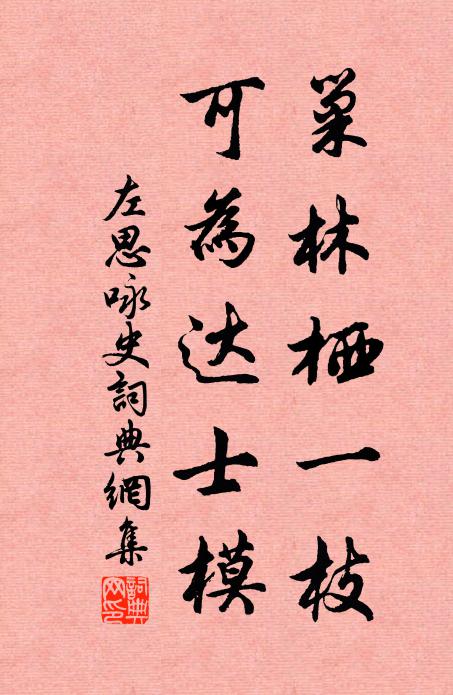 巢林栖一枝
可為达士模
左思咏史詞典網集
詞典網印